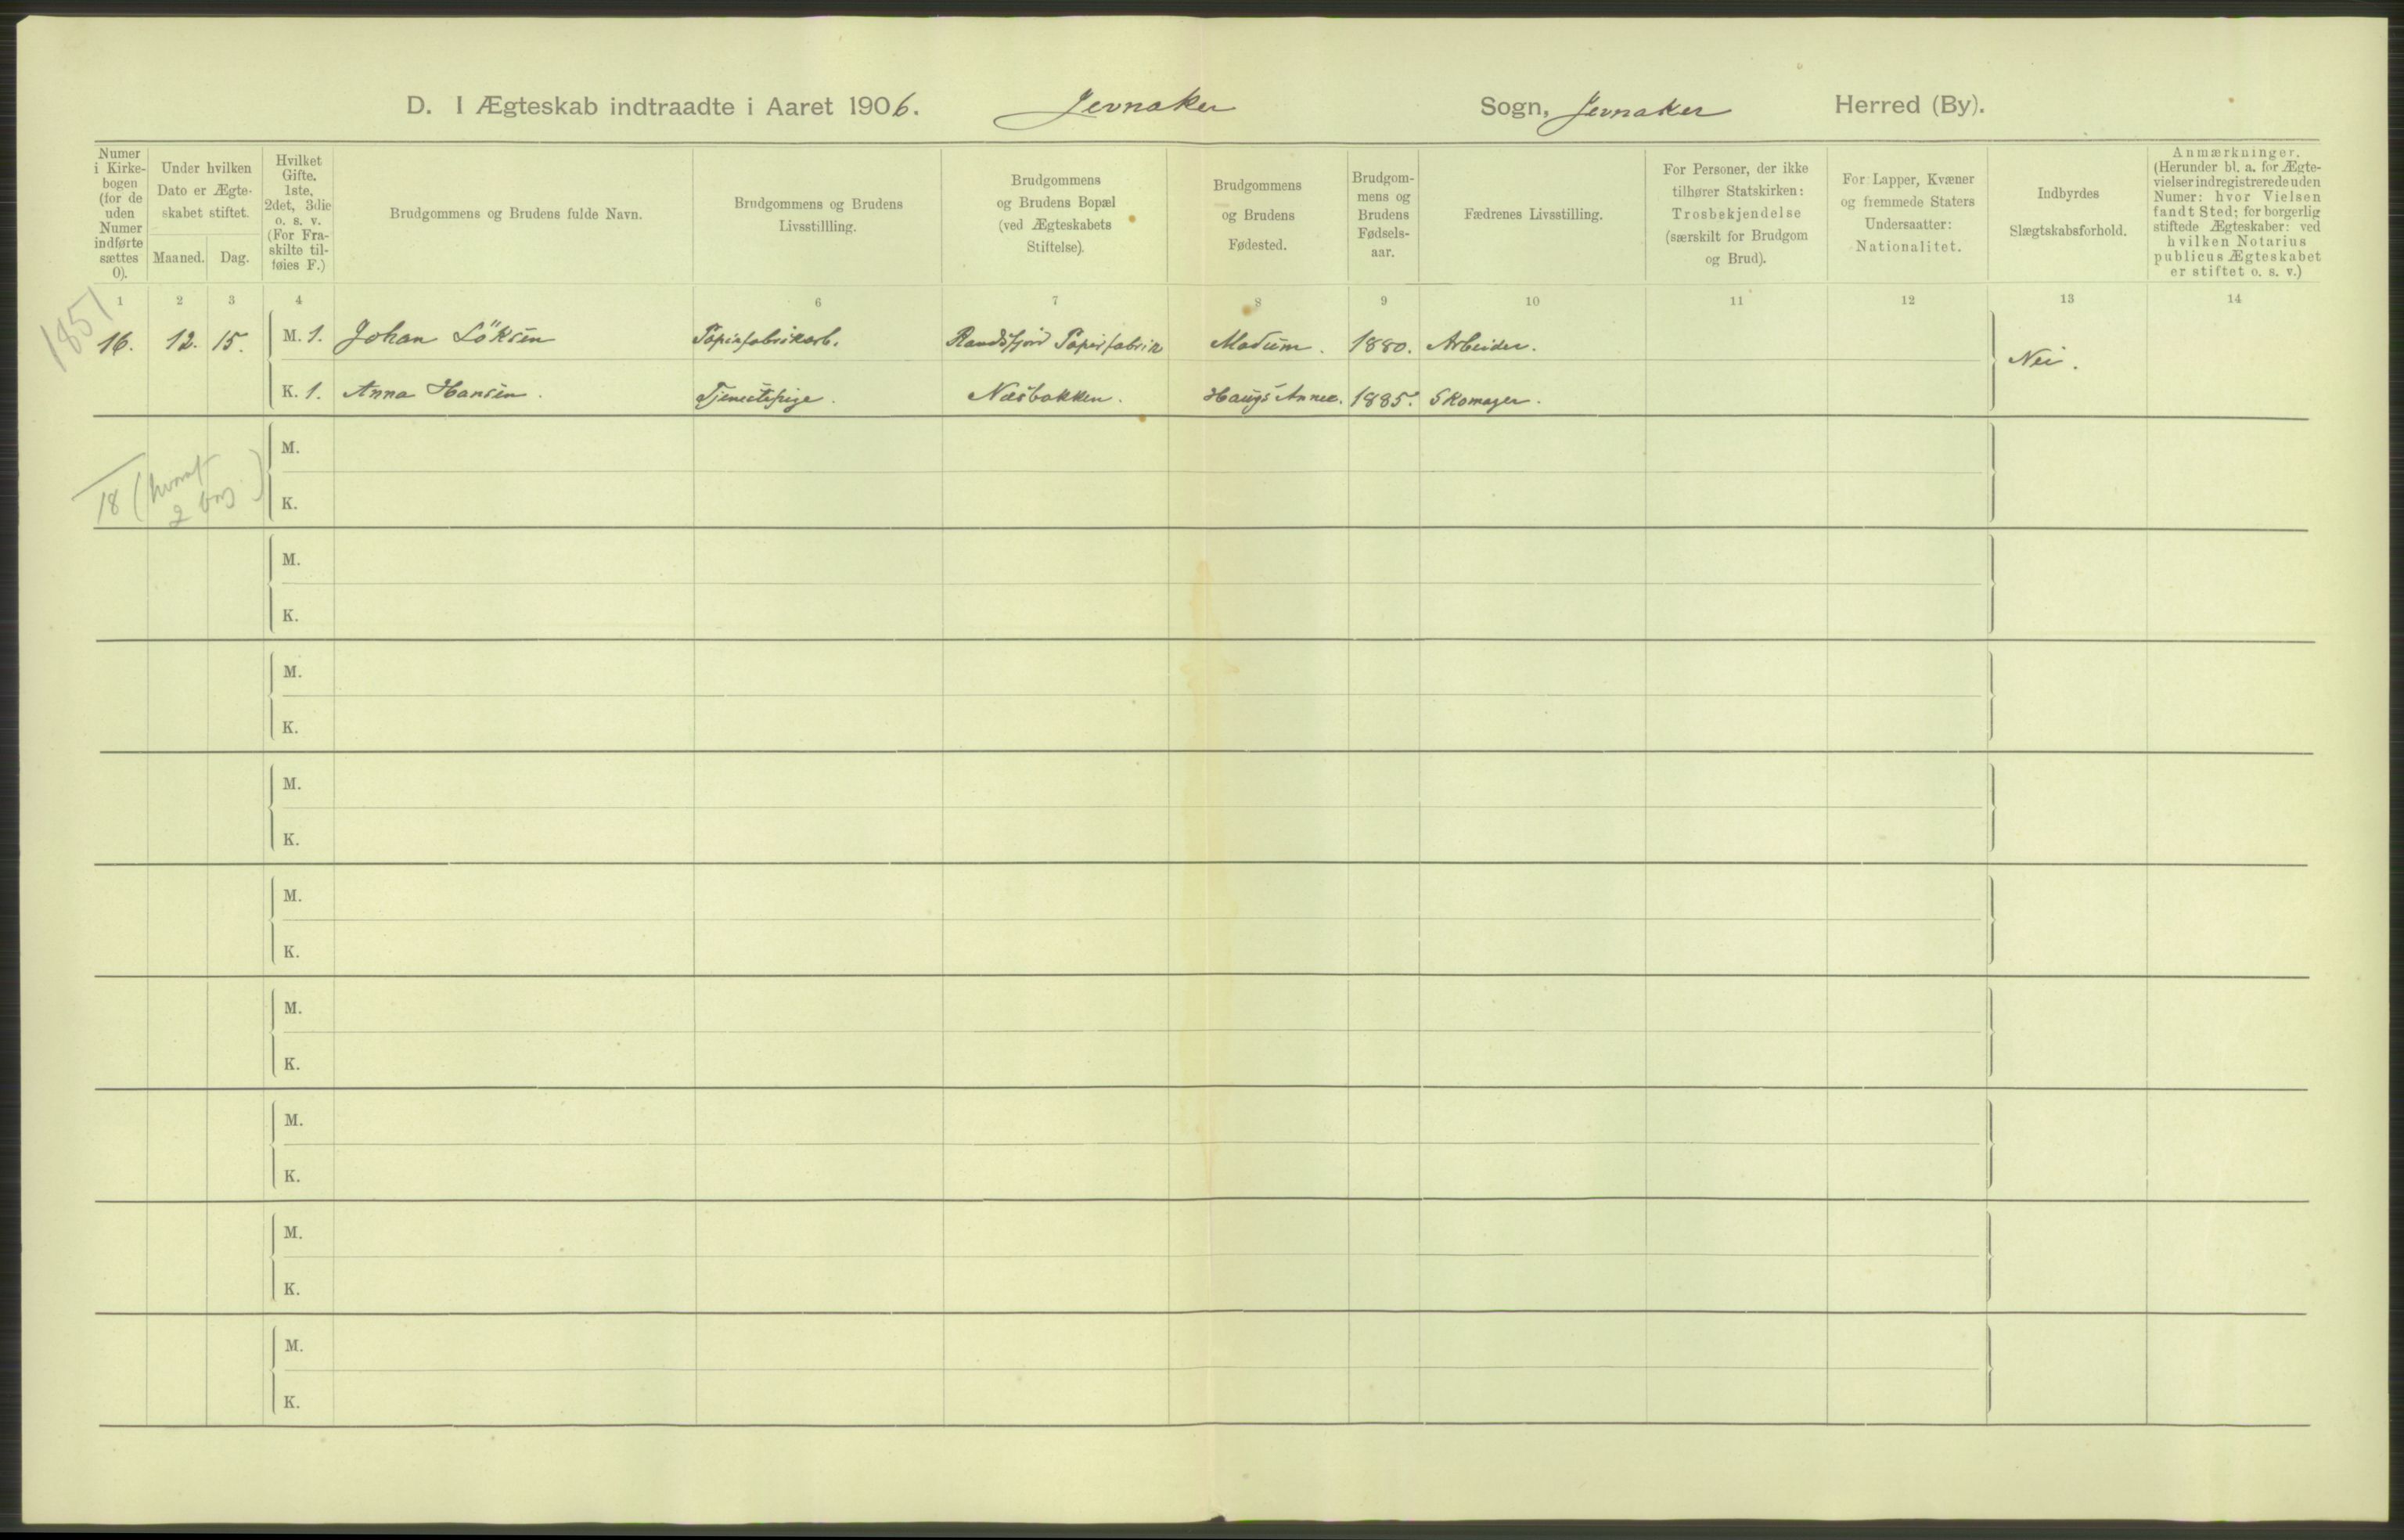 D. I Ægteskab indtraadte i Aaret 1906. Jevnaker Sogn, Jevnaker Herred (By).
Numer
i Kirke-
bogen
(for de
uden
Numer
indførte
sættes
0).
Under hvilken
Dato er Ægte-
skabet stiftet.
Maaned.
Dag.
Hvilket
Gifte.
1ste,
2det, 3die
o. s. v.
(For Fra-
skilte til-
føies F.)
Brudgommens og Brudens fulde Navn.
Brudgommens og Brudens
Livsstillling.
Brudgommens
og Brudens Bopæl
(ved Ægteskabets
Stiftelse).
Brudgommens
og Brudens
Fødested.
Brudgom-
mens og
Brudens
Fødsels-
aar.
Fædrenes Livsstilling.
For Personer, der ikke
tilhører Statskirken:
Trosbekjendelse
(særskilt for Brudgom
og Brud).
For Lapper, Kvæner
og fremmede Staters
Undersaatter:
Nationalitet.
Indbyrdes
Slægtskabsforhold.
Anmærkninger.
(Herunder bl. a. for Ægte-
vielser indregistrerede uden
Numer: hvor Vielsen
fandt Sted; for borgerlig
stiftede Ægteskaber: ved
hvilken Notarius
publicus Ægteskabet
er stiftet o. s. v.)
1 2 3 4 6 7 8 9 10 11 12 13 14
1851
16. 12. 15. M. 1. Johan Löksen Papirfabrikarb. Randsfjord Papirfabrik Modum. 1880. Arbeider.
Nei.
K. 1. Anna Hansen. Tjenestepige. Næsbakken. Haugs Annex. 1885. Skomager.
M.
18 (hvoraf
2 )
K.
M.
K.
M.
K.
M.
K.
M.
K.
M.
K.
M.
K.
M.
K.
M.
K.